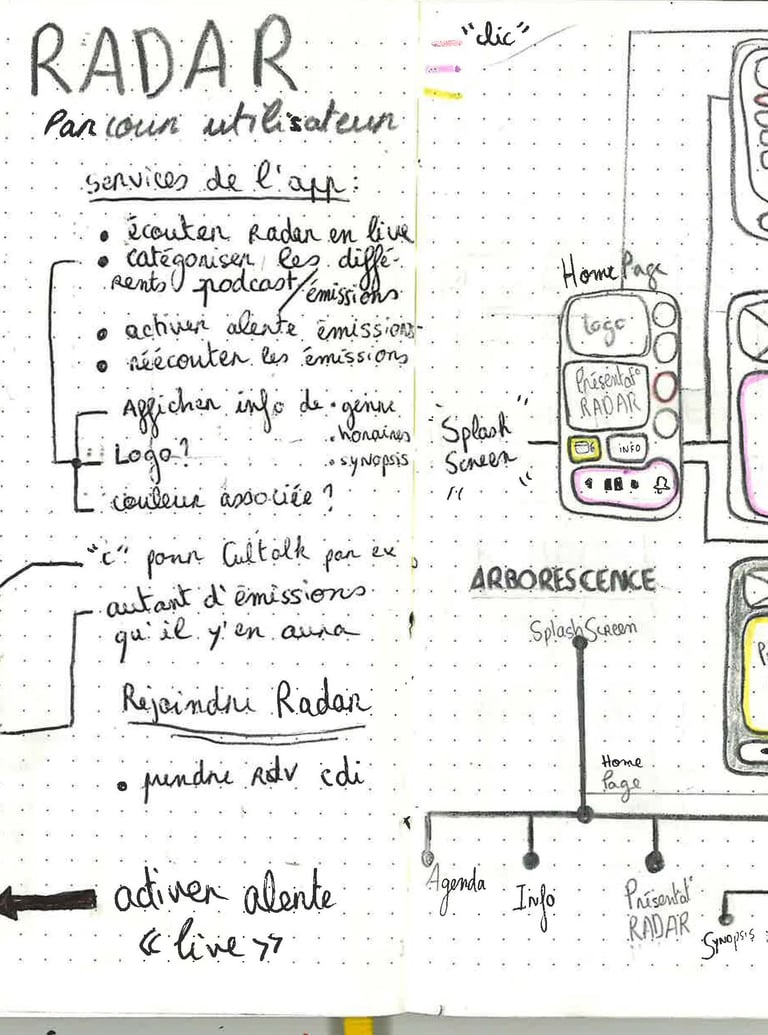 RADAR
Parcour utilisateur
services de l'app:
• écouter Radar en live
• catégoriser les diffé-
rents podcast/émissions
• activer alerte émissions
• réécouter les émissions
Afficher info de • genre
• horaires
Logo?
• synopsis
couleur associée ?
"c" pour Cultalk par ex
autant d'émissions
qu'il y'en aura
Rejoindre Radar
• prendre RDV cdi
activer alerte
« live »
"clic"
Home Page
logo
Présentat°
RADAR
INFO
"Splash
Screen"
ARBORESCENCE
SplashScreen
Home
Page
Agenda
Info
Présentat°
RADAR
Synopsis